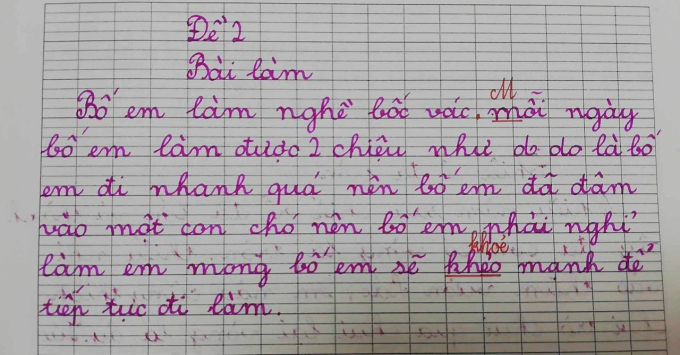 Đề 2
Bài làm
M
Bố em làm nghề bốc vác. mỗi ngày
bố em làm được 2 chiệu như do do là bố
em đi nhanh quá nên bố em đã đâm
vào một con chó nên bố em phải nghỉ
khoẻ
làm em mong bố em sẽ khẻo mạnh để
tiếp tục đi làm.